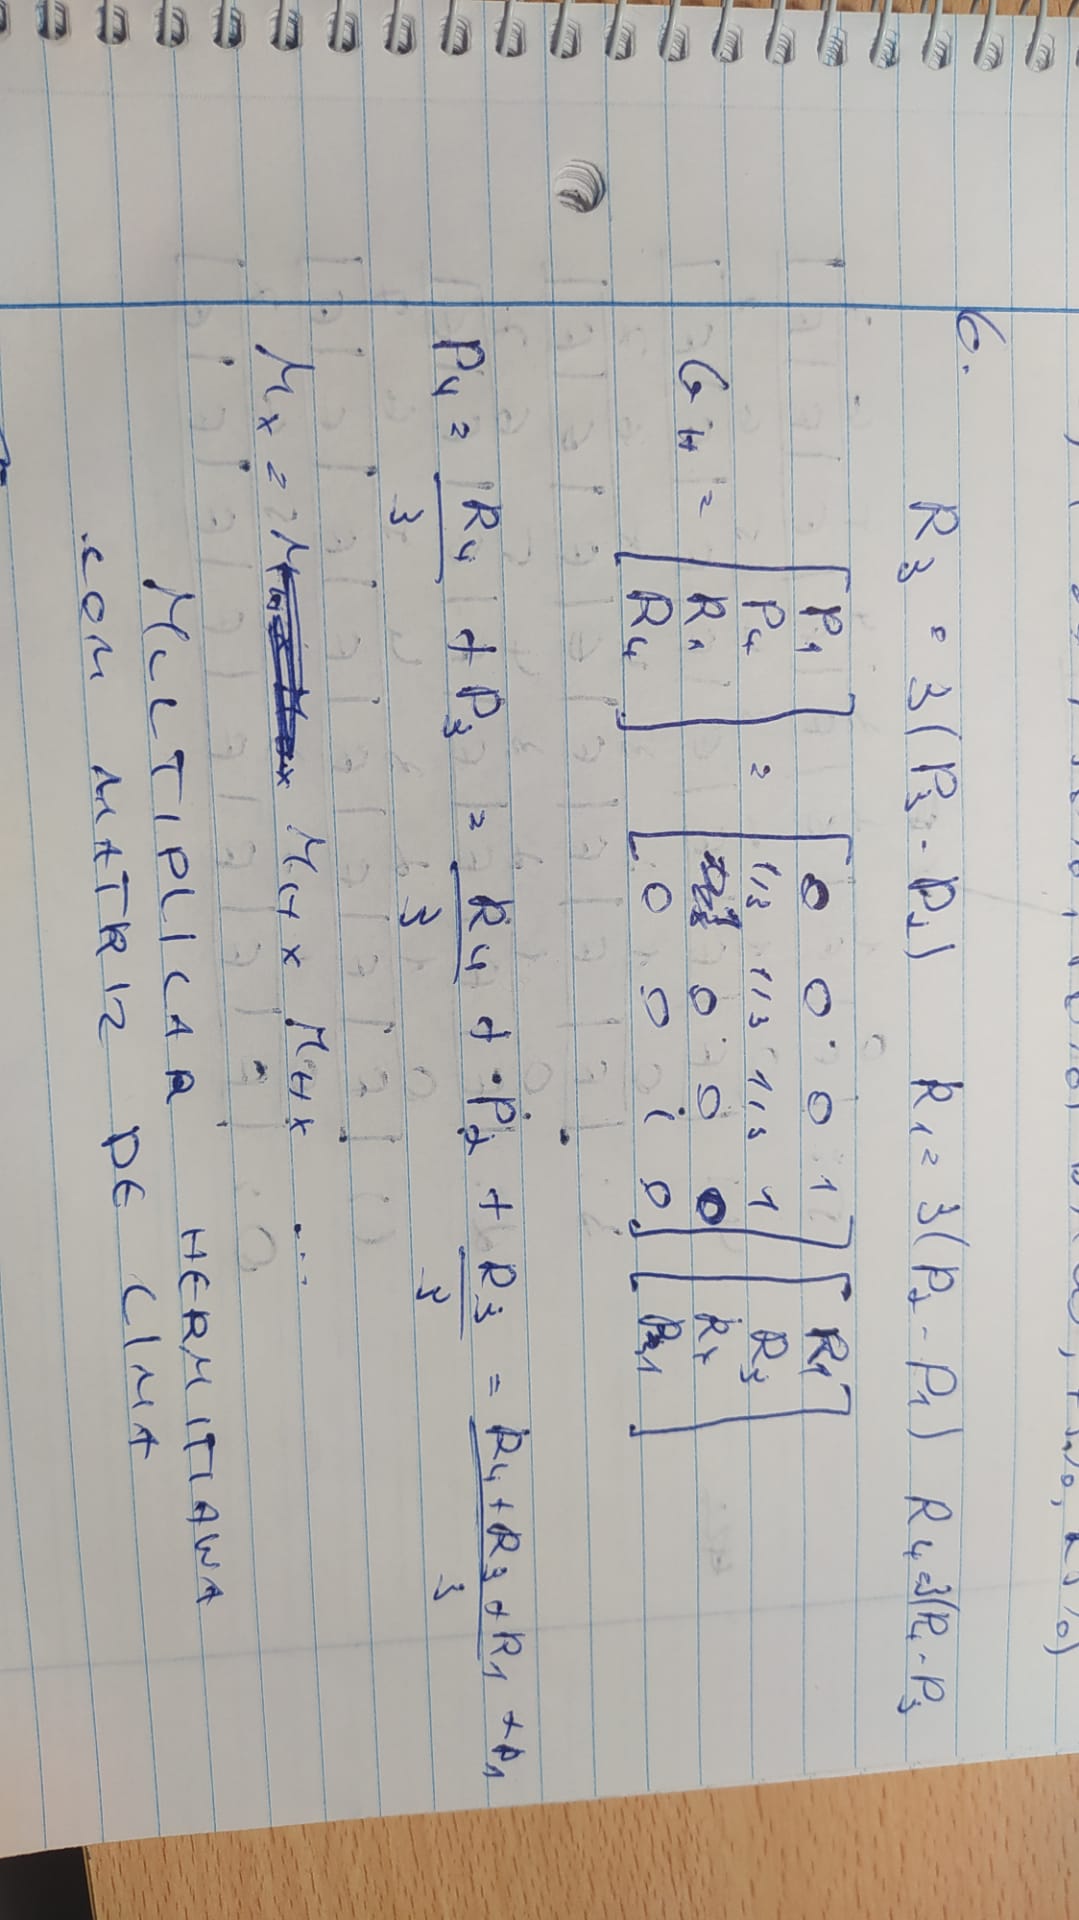 6.
R3 = 3(P3 - P2) R1 = 3(P2 - P1) R4 = 3(R4 - P3
GH = [P1 P4 R1 R4] = [0 0 0 1 [R1
1/3 1/3 1/3 1 R3
1 0 0 0 R4
0 0 1 0] P1]
P4 = R4/3 + P3 = R4/3 + P2 + R3/3 = R4+R3+R1/3 + P1
Mx = MH x MHx ...
MULTIPLICAR HERMITIANA
COM MATRIZ DE CIMA